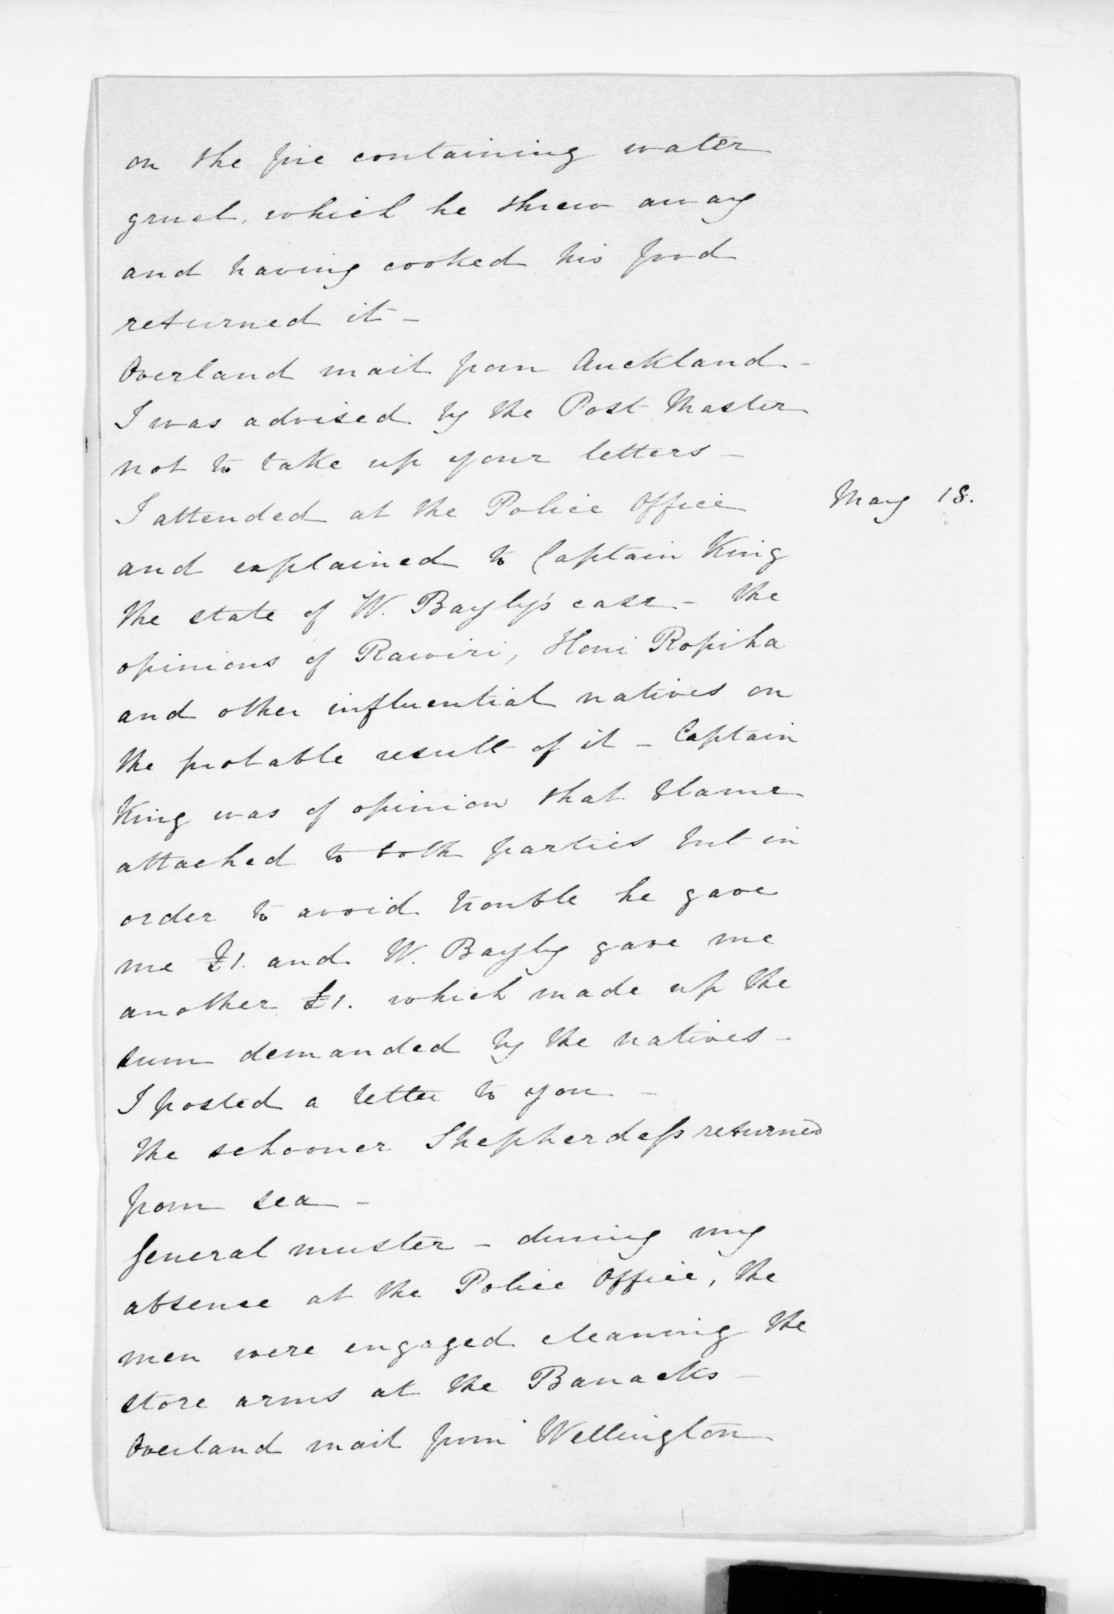 on the fire containing water
gruel, which he threw away
and having cooked his food
returned it -
Overland mail from Auckland -
I was advised by the Post Master
not to take up your letters -
I attended at the Police Office May 18.
and explained to Captain King
the state of W. Bayly's case - the
opinions of Rawiri, Honi Ropiha
and other influential natives on
the probable result of it - Captain
King was of opinion that blame
attached to both parties but in
order to avoid trouble he gave
me £1. and W. Bayly gave me
another £1. which made up the
sum demanded by the natives -
I posted a letter to you -
The schooner Shepherdess returned
from sea -
General muster - during my
absence at the Police Office, the
men were engaged cleaning the
store arms at the Barracks -
Overland mail from Wellington